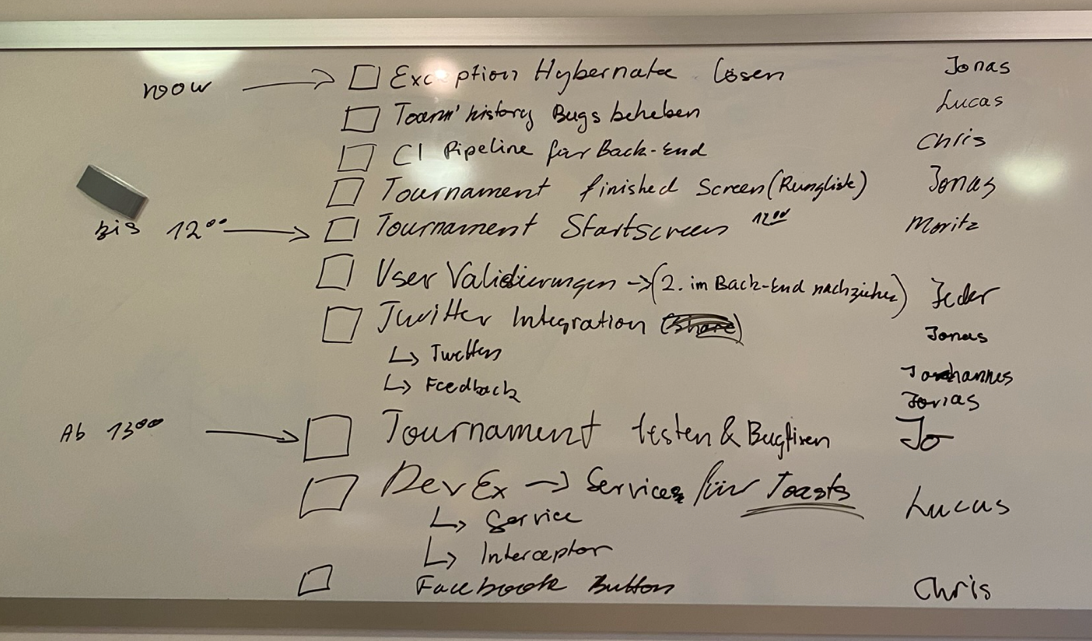 now → Exception Hybernate lösen Jonas
Team history Bugs beheben Lucas
CI Pipeline für Back-End Chris
Tournament finished Screen (Rangliste) Jonas
bis 12⁰⁰ → Tournament Startscreen 12⁰⁰ Moritz
User Validierungen → (2. im Back-End nachziehen) Jeder
Twitter Integration (share) Jonas
↳ Twittern
↳ Feedback Johannes
Jonas
Ab 13⁰⁰ → Tournament testen & Bugfixen Jo
DevEx → Services für Toasts Lucas
↳ Service
↳ Interceptor
Facebook Button Chris